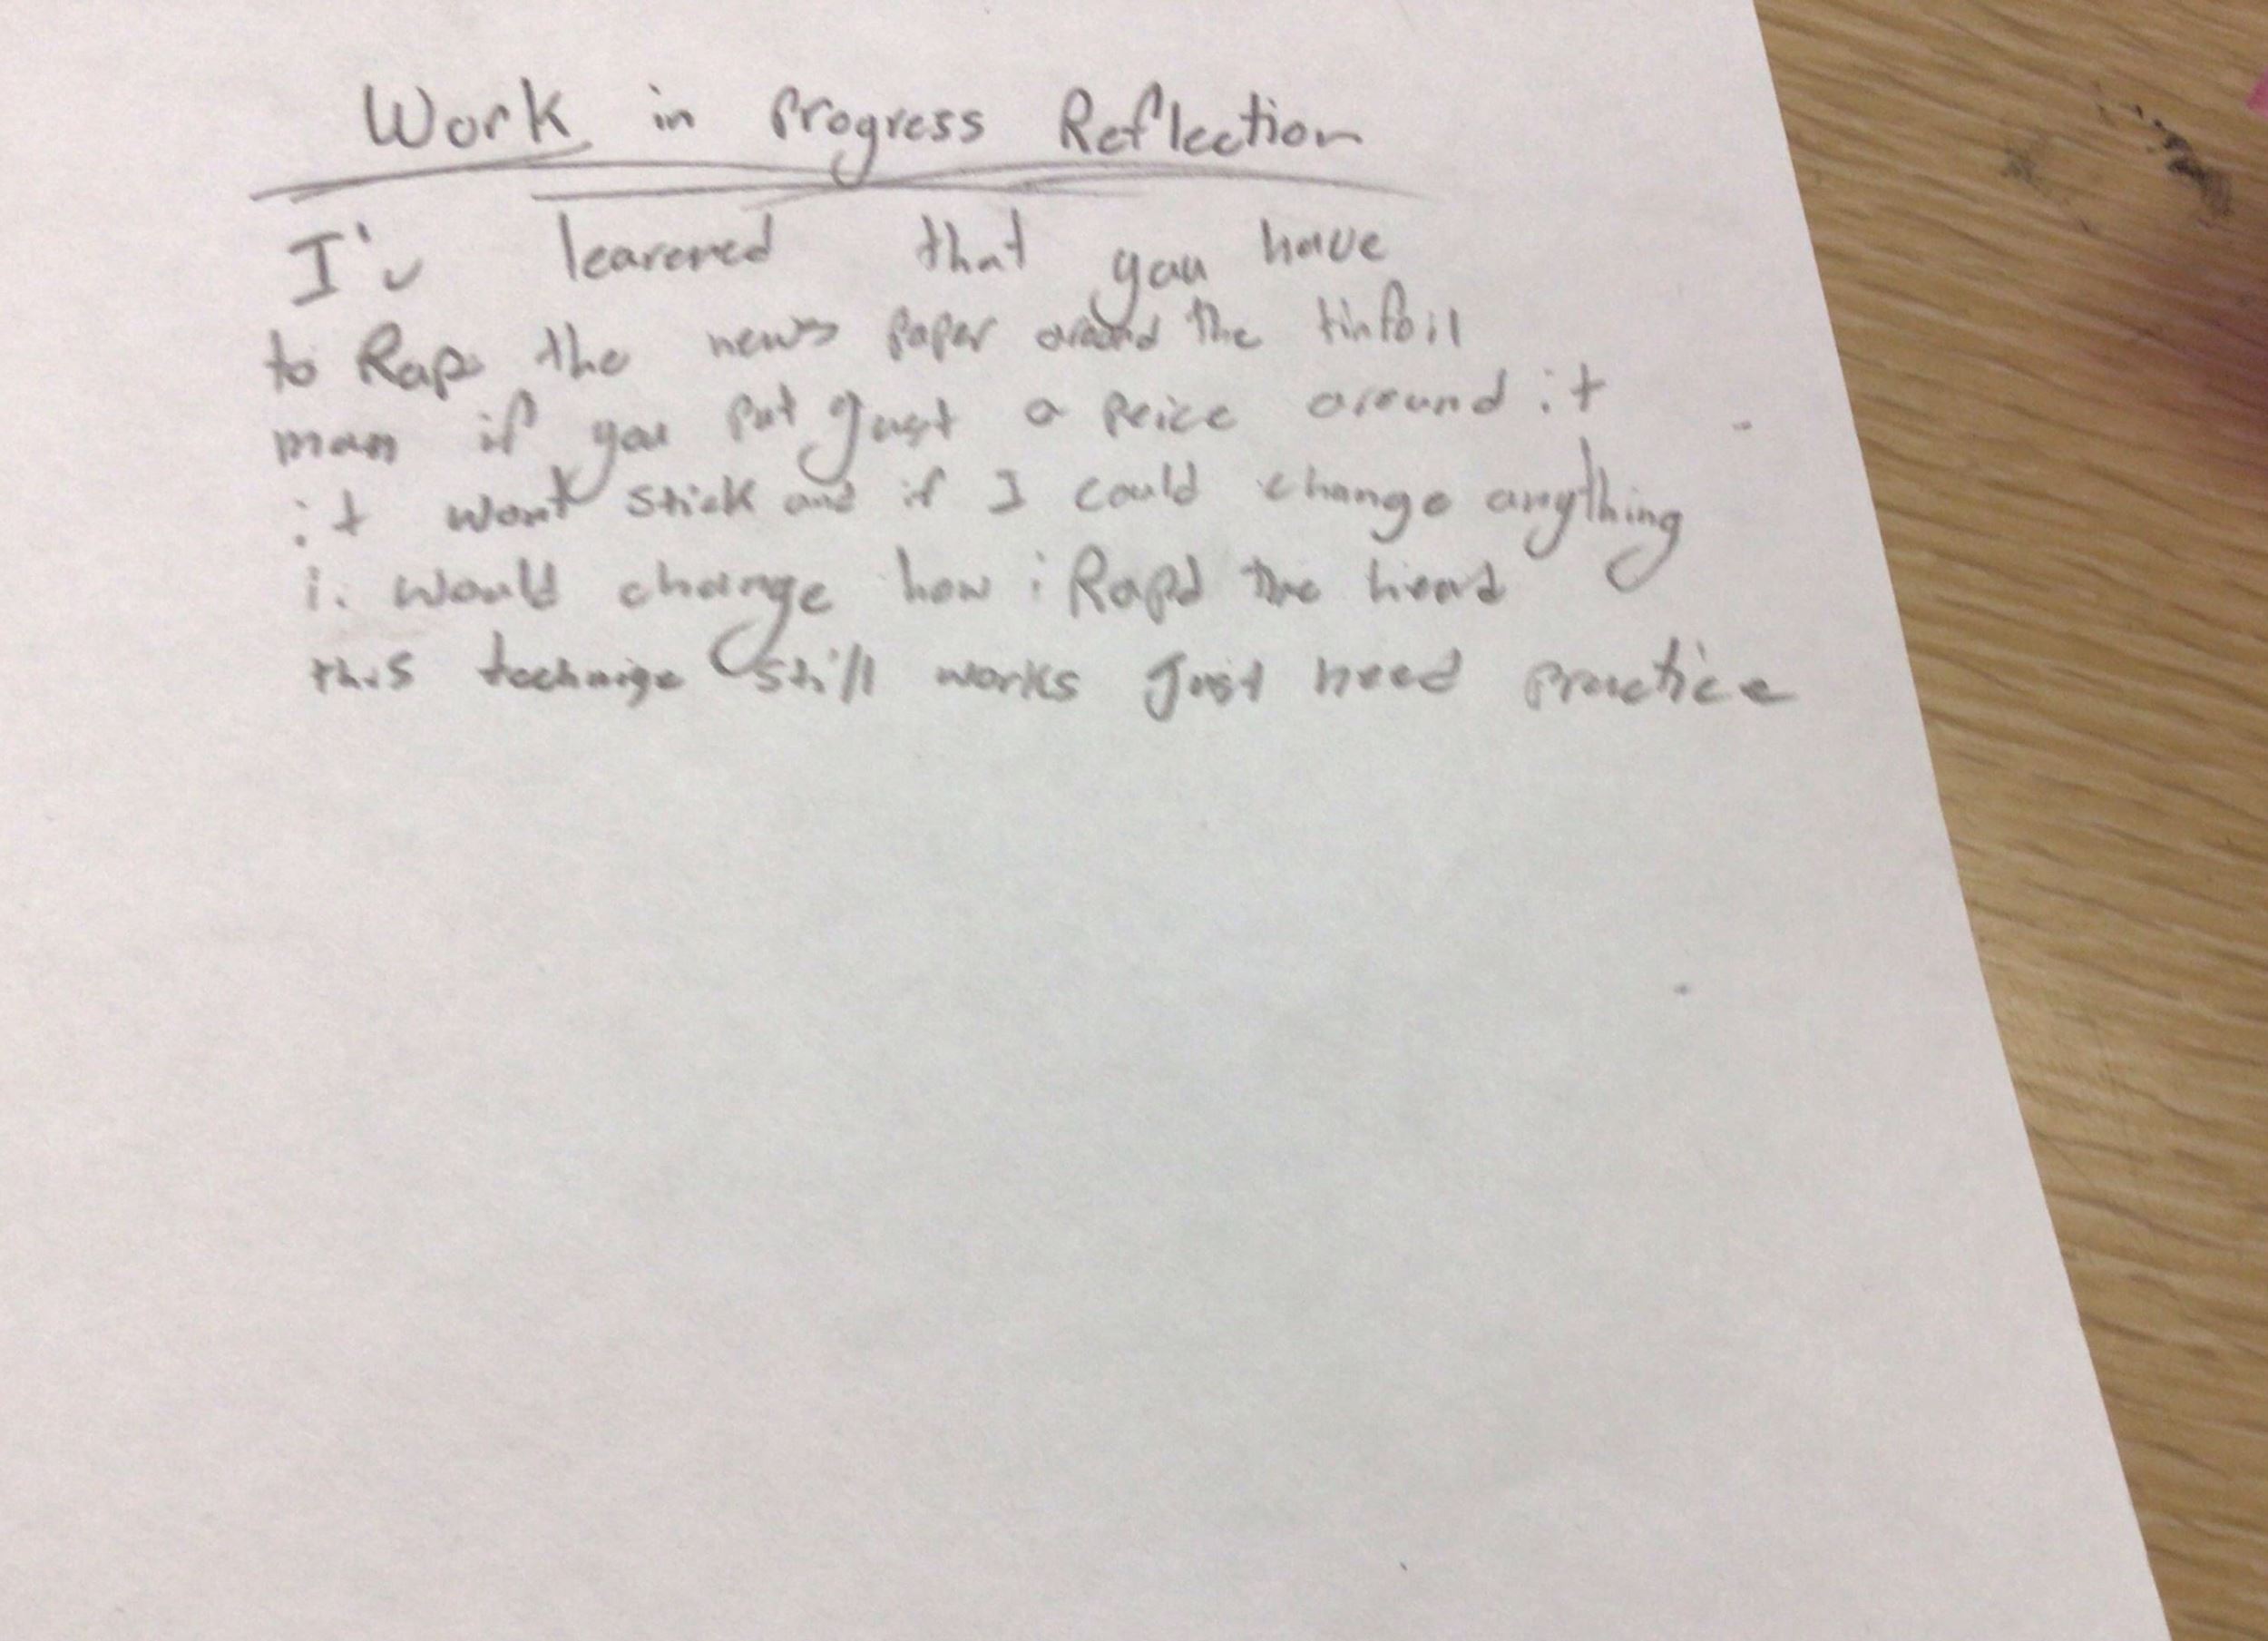 Work in Progress Reflection
I'v learened that you have
to Rap the news paper around the tinfoil
man if you put Just a peice around it
it wont stick and if I could change anything
i. would change how i Rapd the head
this technige still works Just need practice